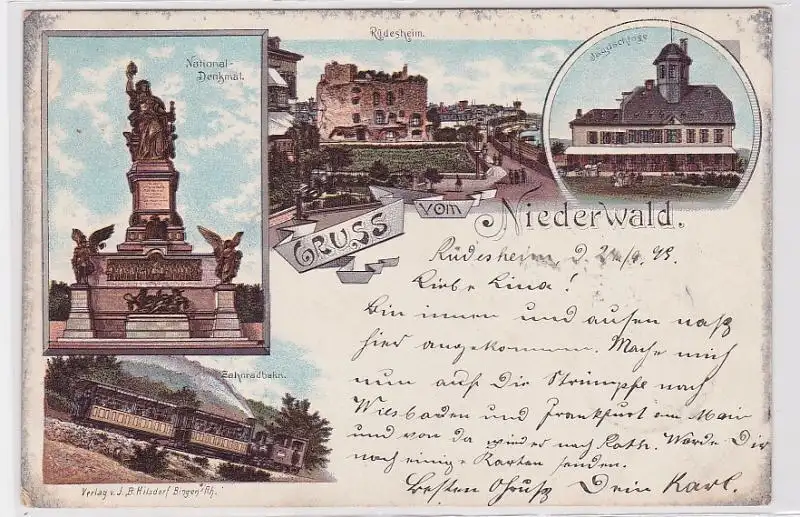 National-
Denkmal.
Rüdesheim.
Jagdschloss
GRUSS
VOM
NIEDERWALD.
Rüdesheim, d.
Liebe Lina!
Bin innen und außen naß
hier angekommen. Mache mich
nun auf die Strümpfe nach
Wiesbaden und Frankfurt am Main
und von da wieder nach Roth. Werde Dir
noch einige Karten senden.
Besten Gruß Dein Karl.
Zahnradbahn.
Verlag v. J. B. Hilsdorf Bingen a/Rh.